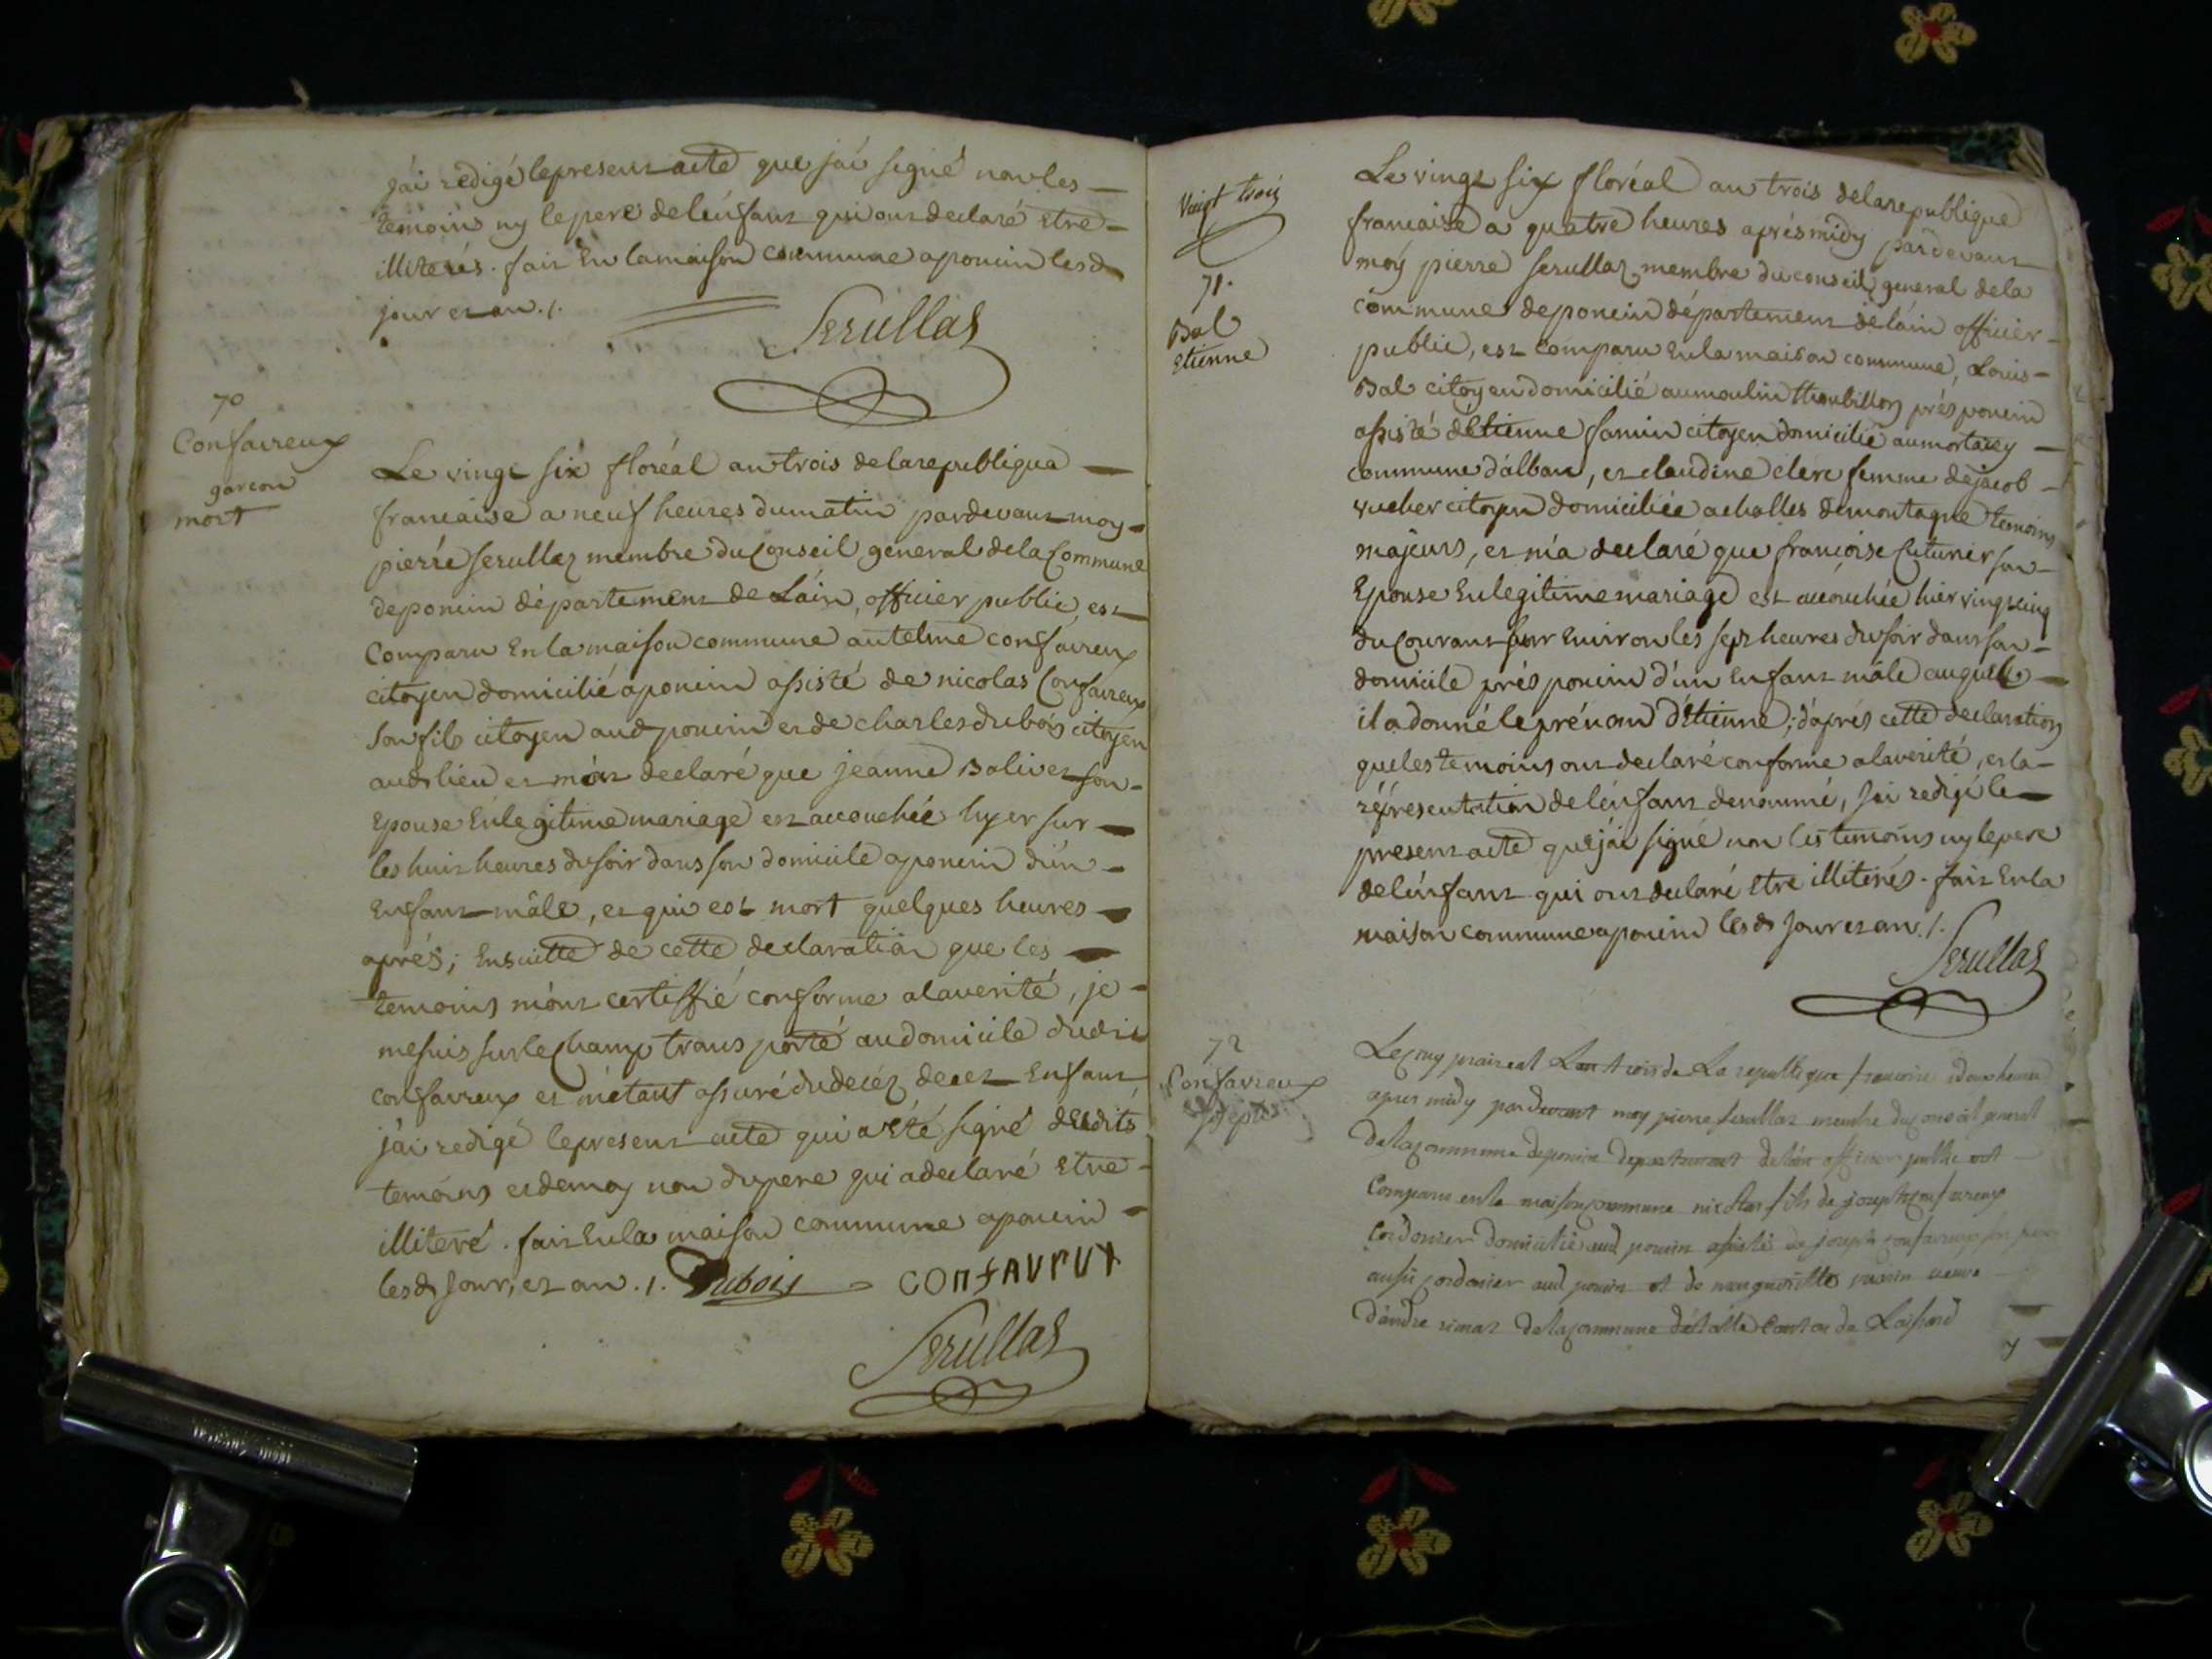 j'ai redigé le present acte que j'ai signé non les
temoins ny le pere de l'enfant qui ont declaré Etre
illiterés. fait En la maison commune a poncin lesd
jour et an ./.
Serullas
70
Confavreux
garcon
mort
Le vingt six floréal an trois de la republique
francaise a neuf heures du matin pardevant moy
pierre Serullaz membre du Conseil general de la Commune
de poncin département de L'ain, officier public, est
Comparu En la maison commune antelme confavreux
citoyen domicilié a poncin assisté de nicolas Confavreux
Son fils citoyen aud poncin et de charles dubois citoyen
aud lieu et m'ont declaré que jeanne Balivet son
Epouse En legitime mariage est accouchée hyer sur
les huit heures du soir dans son domicile a poncin d'un
Enfant mâle, et qui est mort quelques heures
aprés; Ensuitte de cette declaration que les
temoins m'ont certiffié conforme a la verité, je
me suis sur le Champ transporté au domicile dudit
confavreux et m'etant assuré du decéz de cet Enfant
j'ai redigé le present acte qui a Eté signé desdits
temoins et de moy non du pere qui a declaré Etre
illiteré. fait En la maison commune a poncin
lesd Jour, et an ./. Dubois conFAVrux
Serullas
Vingt trois
71.
Bal
Etienne
Le vingt six floréal an trois de la republique
francaise a quatre heures aprés midy pardevant
moy pierre Serullaz membre du conseil general de la
commune de poncin département de l'ain officier
public, est Comparu En la maison commune, Louis
Bal citoyen domicilié au moulin thoubillon prés poncin
assisté d'Etienne famin citoyen domicilié au mortarey
commune d'alban, et claudine clerc femme de jacob
vucher citoyen domiciliée a challes de montagne temoins
majeurs, et m'a declaré que francoise Cuturier son
Epouse En legitime mariage est accouchée hier vingt cinq
du Courant sur Environ les sept heures du soir dans son
domicile prés poncin d'un Enfant mâle auquel
il a donné le prénom d'Etienne; d'aprés cette declaration
que les temoins ont declaré conforme a la verité, et la
représentation de l'enfant denommé, j'ai redigé le
present acte que j'ai signé non les temoins ny le pere
de l'enfant qui ont declaré Etre illiterés. fait En la
maison commune a poncin lesd Jour et an ./.
Serullas
72
Confavreux
joseph
Le prairéal L'an trois de La republique francoise heures
apres midy pardevant moy pierre Serullaz membre du conseil general
de la commune de poncin departement de l'ain officier public est
Comparu en la maison commune nicolas fils de joseph confavreux
Cordonier domicilié aud poncin assisté de joseph confavreux son pere
aussi cordonier aud poncin et de marguerite veuve
d'andre de la commune canton de